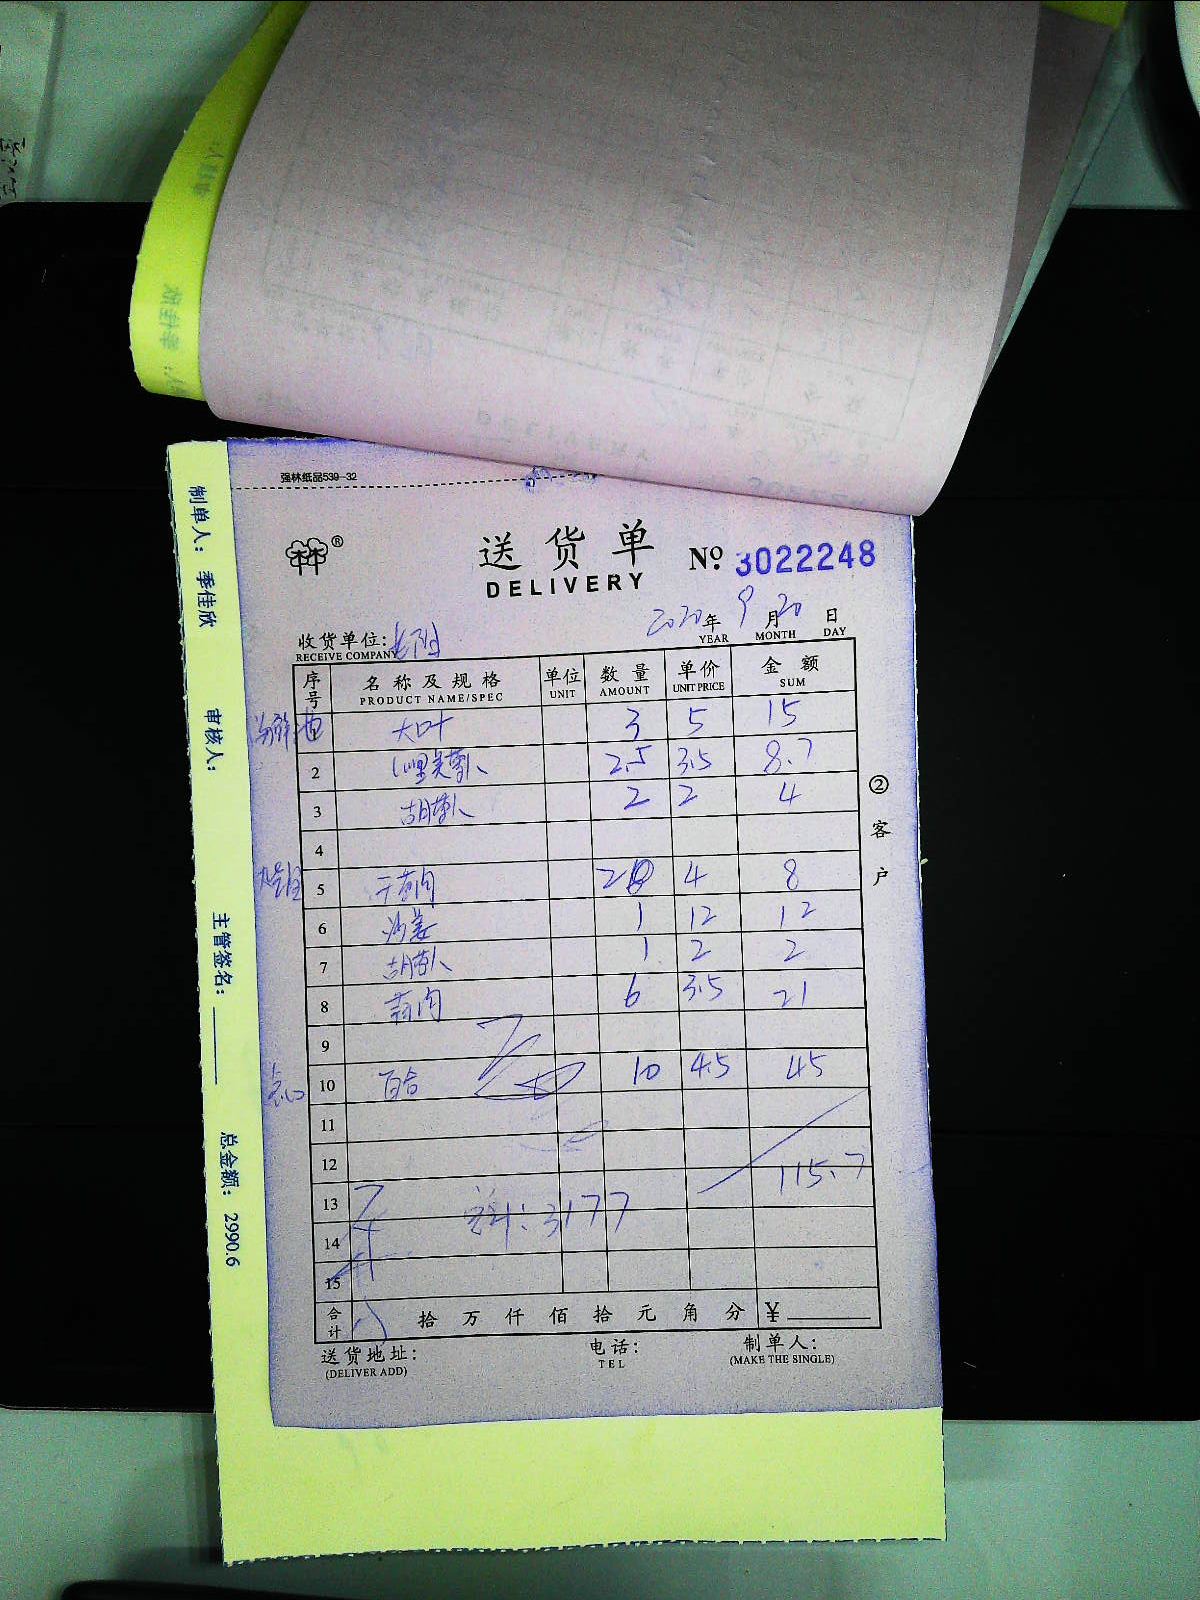 强林纸品539-32
®
送货单
DELIVERY
No. 3022248
2020年 9月 20日
YEAR MONTH DAY
收货单位:
RECEIVE COMPANY
序号 名称及规格 单位 数量 单价 金额
PRODUCT NAME/SPEC UNIT AMOUNT UNIT PRICE SUM
1 大叶 3 5 15
2 2.5 3.5 8.7
3 2 2 4
4
5 4 8
6 沙姜 1 12 12
7 1 2 2
8 6 3.5 21
9
点心 10 百合 10 4.5 45
11
12
115.7
13 3177
14
15
合计 拾万仟佰拾元角分 ¥
送货地址: 电话: 制单人:
(DELIVER ADD) TEL (MAKE THE SINGLE)
②客户
制单人: 季佳欣 审核人: 主管签名: 总金额: 2990.6